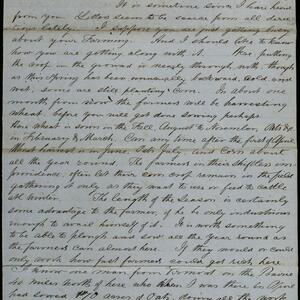 It is sometime since I have heard
from you. Letters seem to be scarce from all dire
lately. I suppose you are just getting busy
about your Farming. And I should like to know
how you are getting along with it. Here putting
the crop in the ground is nearly through with, though
as this Spring has been unusually backward, cold and
wet, some are still planting Corn. In about one
month from now the farmers will be harvesting
wheat, before you will get done sowing perhaps.
Here wheat is sown in the Fall, August to November, Oats &c
in February & March, Corn any time after the first of April
Wheat harvest is in June, Oats July, and Corn about
all the year round. The farmers in their shiftless im
providence, often let their corn crop remain in the field
gathering it only as they want to use or feed to cattle
all winter. The length of the Season is certainly
some advantage to the farmer, if he be only industrious
enough to avail himself of it. It is worth something
to be able to plough and sow all the year round as
the farmers can almost here. If they would or could
only know how fast farmers could get rich here
I know one man from Vermont on the Prairie
miles North of here who when I was there in April
had sowed acres of Oats, doing all the work